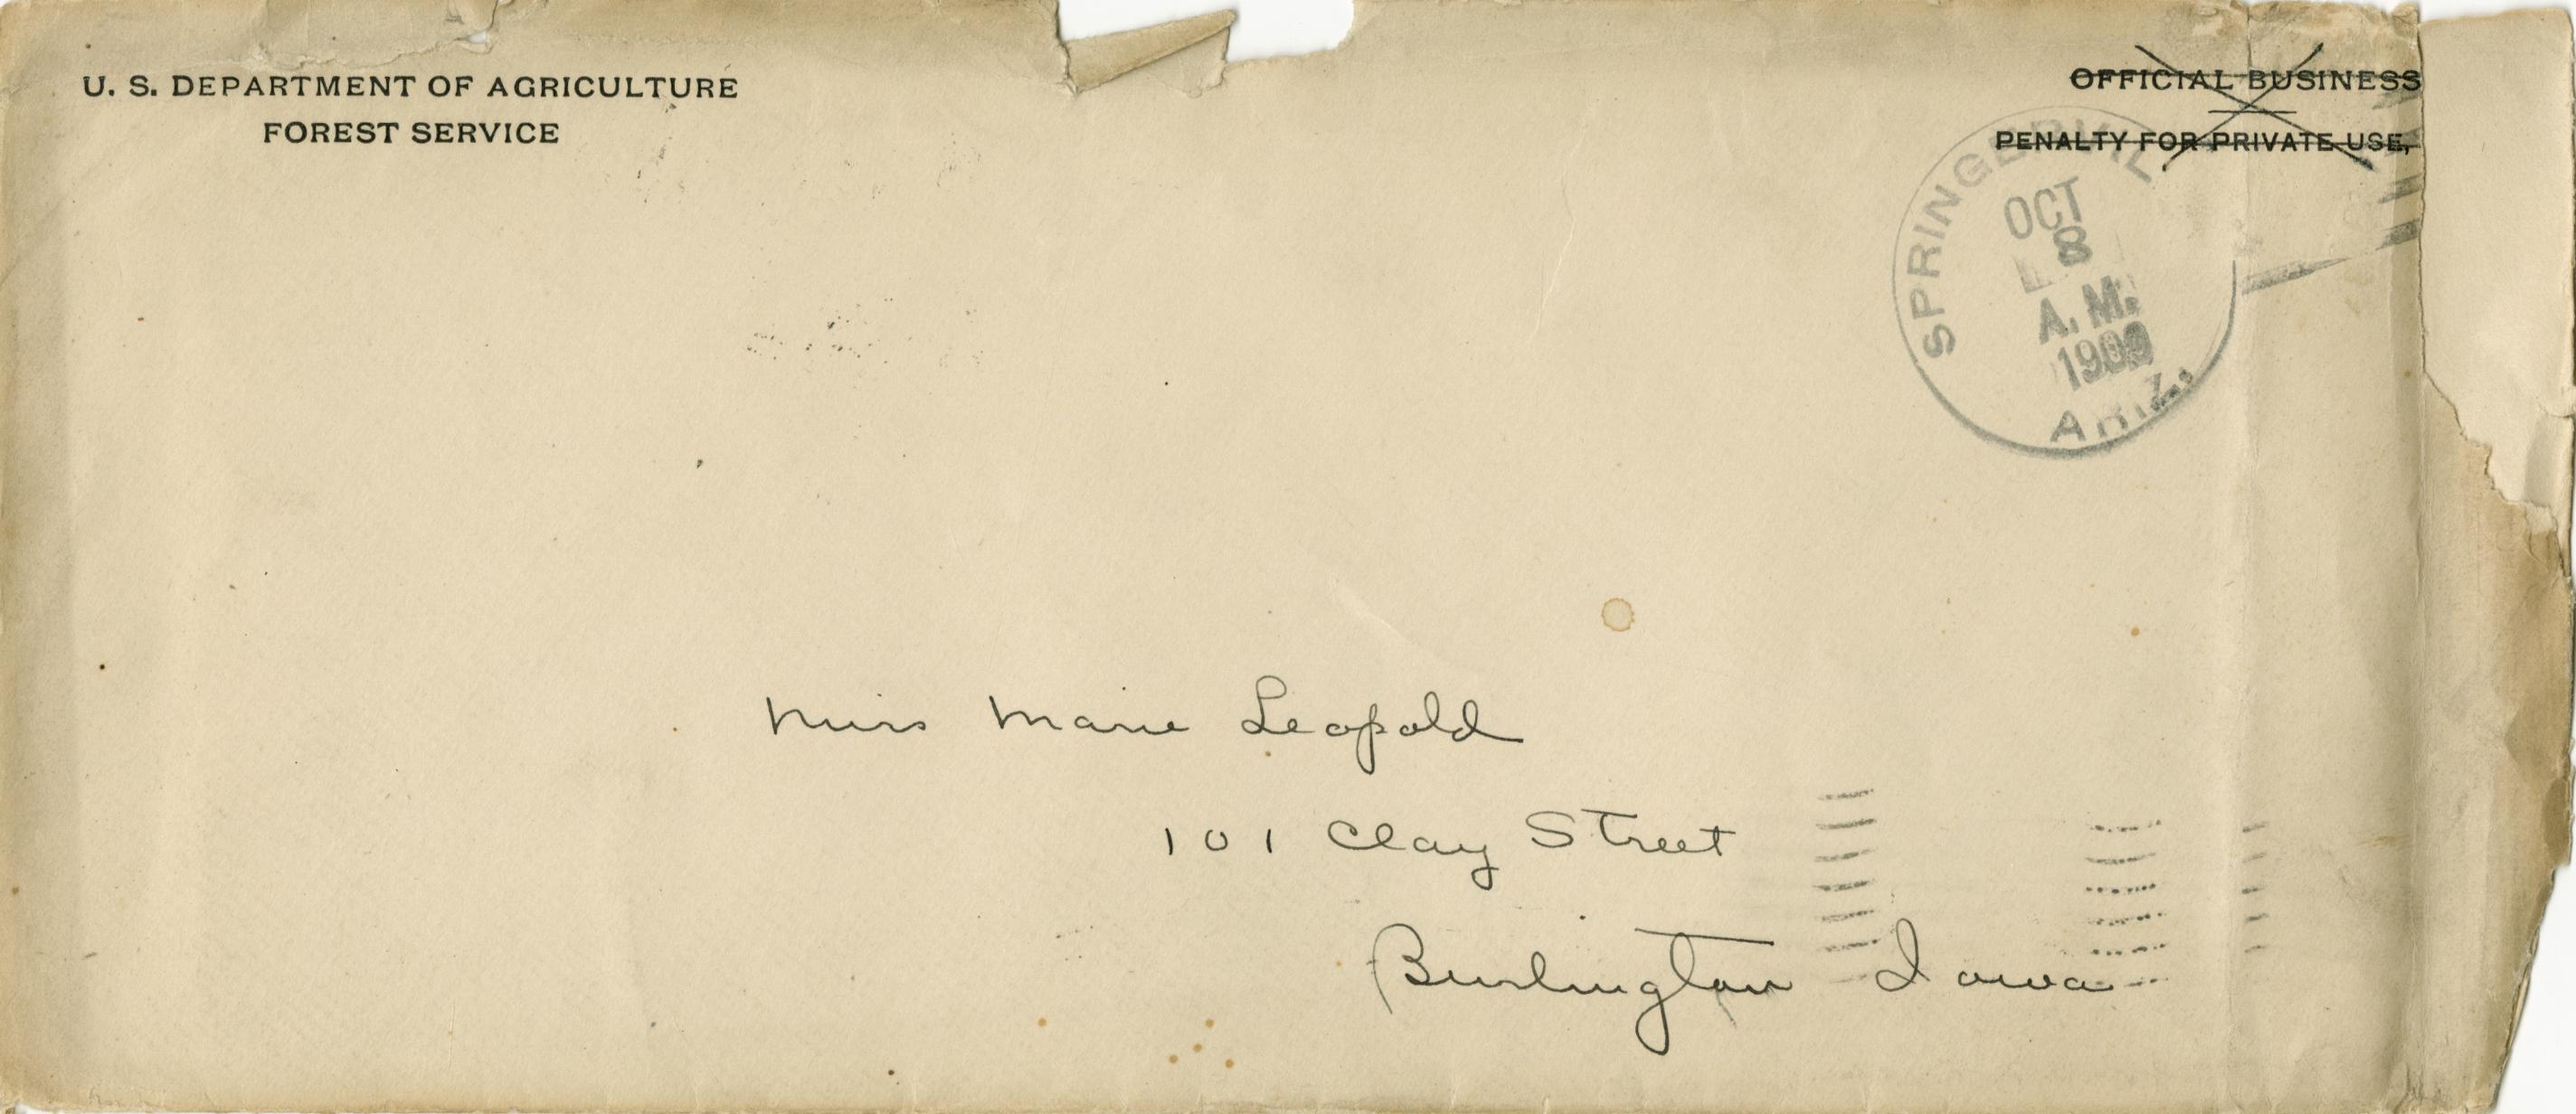 U. S. DEPARTMENT OF AGRICULTURE
FOREST SERVICE
OFFICIAL BUSINESS
PENALTY FOR PRIVATE USE,
SPRINGERVIL
OCT
8
A. M.
1909
ARIZ.
Miss Marie Leopold
101 Clay Street
Burlington Iowa